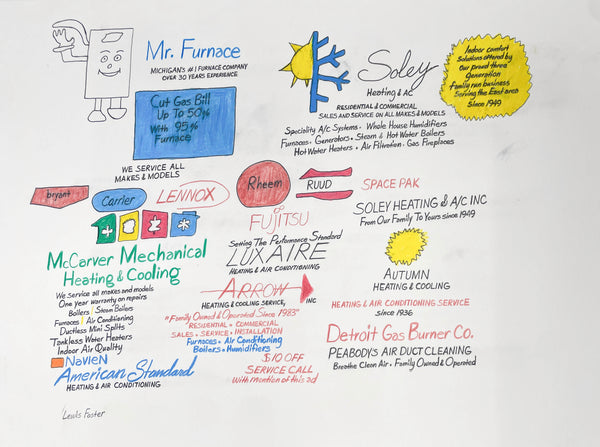 Mr. Furnace
MICHIGAN'S #1 FURNACE COMPANY
OVER 30 YEARS EXPERIENCE
Cut Gas Bill
Up To 50%
With 95%
Furnace
WE SERVICE ALL
MAKES & MODELS
Soley
Heating & AC
RESIDENTIAL & COMMERCIAL
SALES AND SERVICE ON ALL MAKES & MODELS
Speciality A/c Systems · Whole House Humidifiers
Furnaces · Generators · Steam & Hot Water Boilers
Hot Water Heaters · Air Filtration · Gas Fireplaces
Indoor comfort
Solutions offered by
Our proud three
Generation
family run business
Serving the East area
Since 1949
bryant
Carrier
LENNOX
Rheem
RUUD
SPACE PAK
FUJITSU
SOLEY HEATING & A/C INC
From Our Family To Yours since 1949
McCarver Mechanical
Heating & Cooling
We service all makes and models
One year warranty on repairs
Boilers | Steam Boilers
Furnaces | Air Conditioning
Ductless Mini Splits
Tankless Water Heaters
Indoor Air Quality
NAVIEN
American Standard
HEATING & AIR CONDITIONING
Setting The Performance Standard
LUXAIRE
HEATING & AIR CONDITIONING
ARROW
HEATING & COOLING SERVICE, INC
"Family Owned & Operated Since 1983"
RESIDENTIAL · COMMERCIAL
SALES · SERVICE · INSTALLATION
Furnaces · Air Conditioning
Boilers · Humidifiers
$10 OFF
SERVICE CALL
With mention of this ad
AUTUMN
HEATING & COOLING
HEATING & AIR CONDITIONING SERVICE
since 1936
Detroit Gas Burner Co.
PEABODY'S AIR DUCT CLEANING
Breathe Clean Air · Family Owned & Operated
Lewis Foster